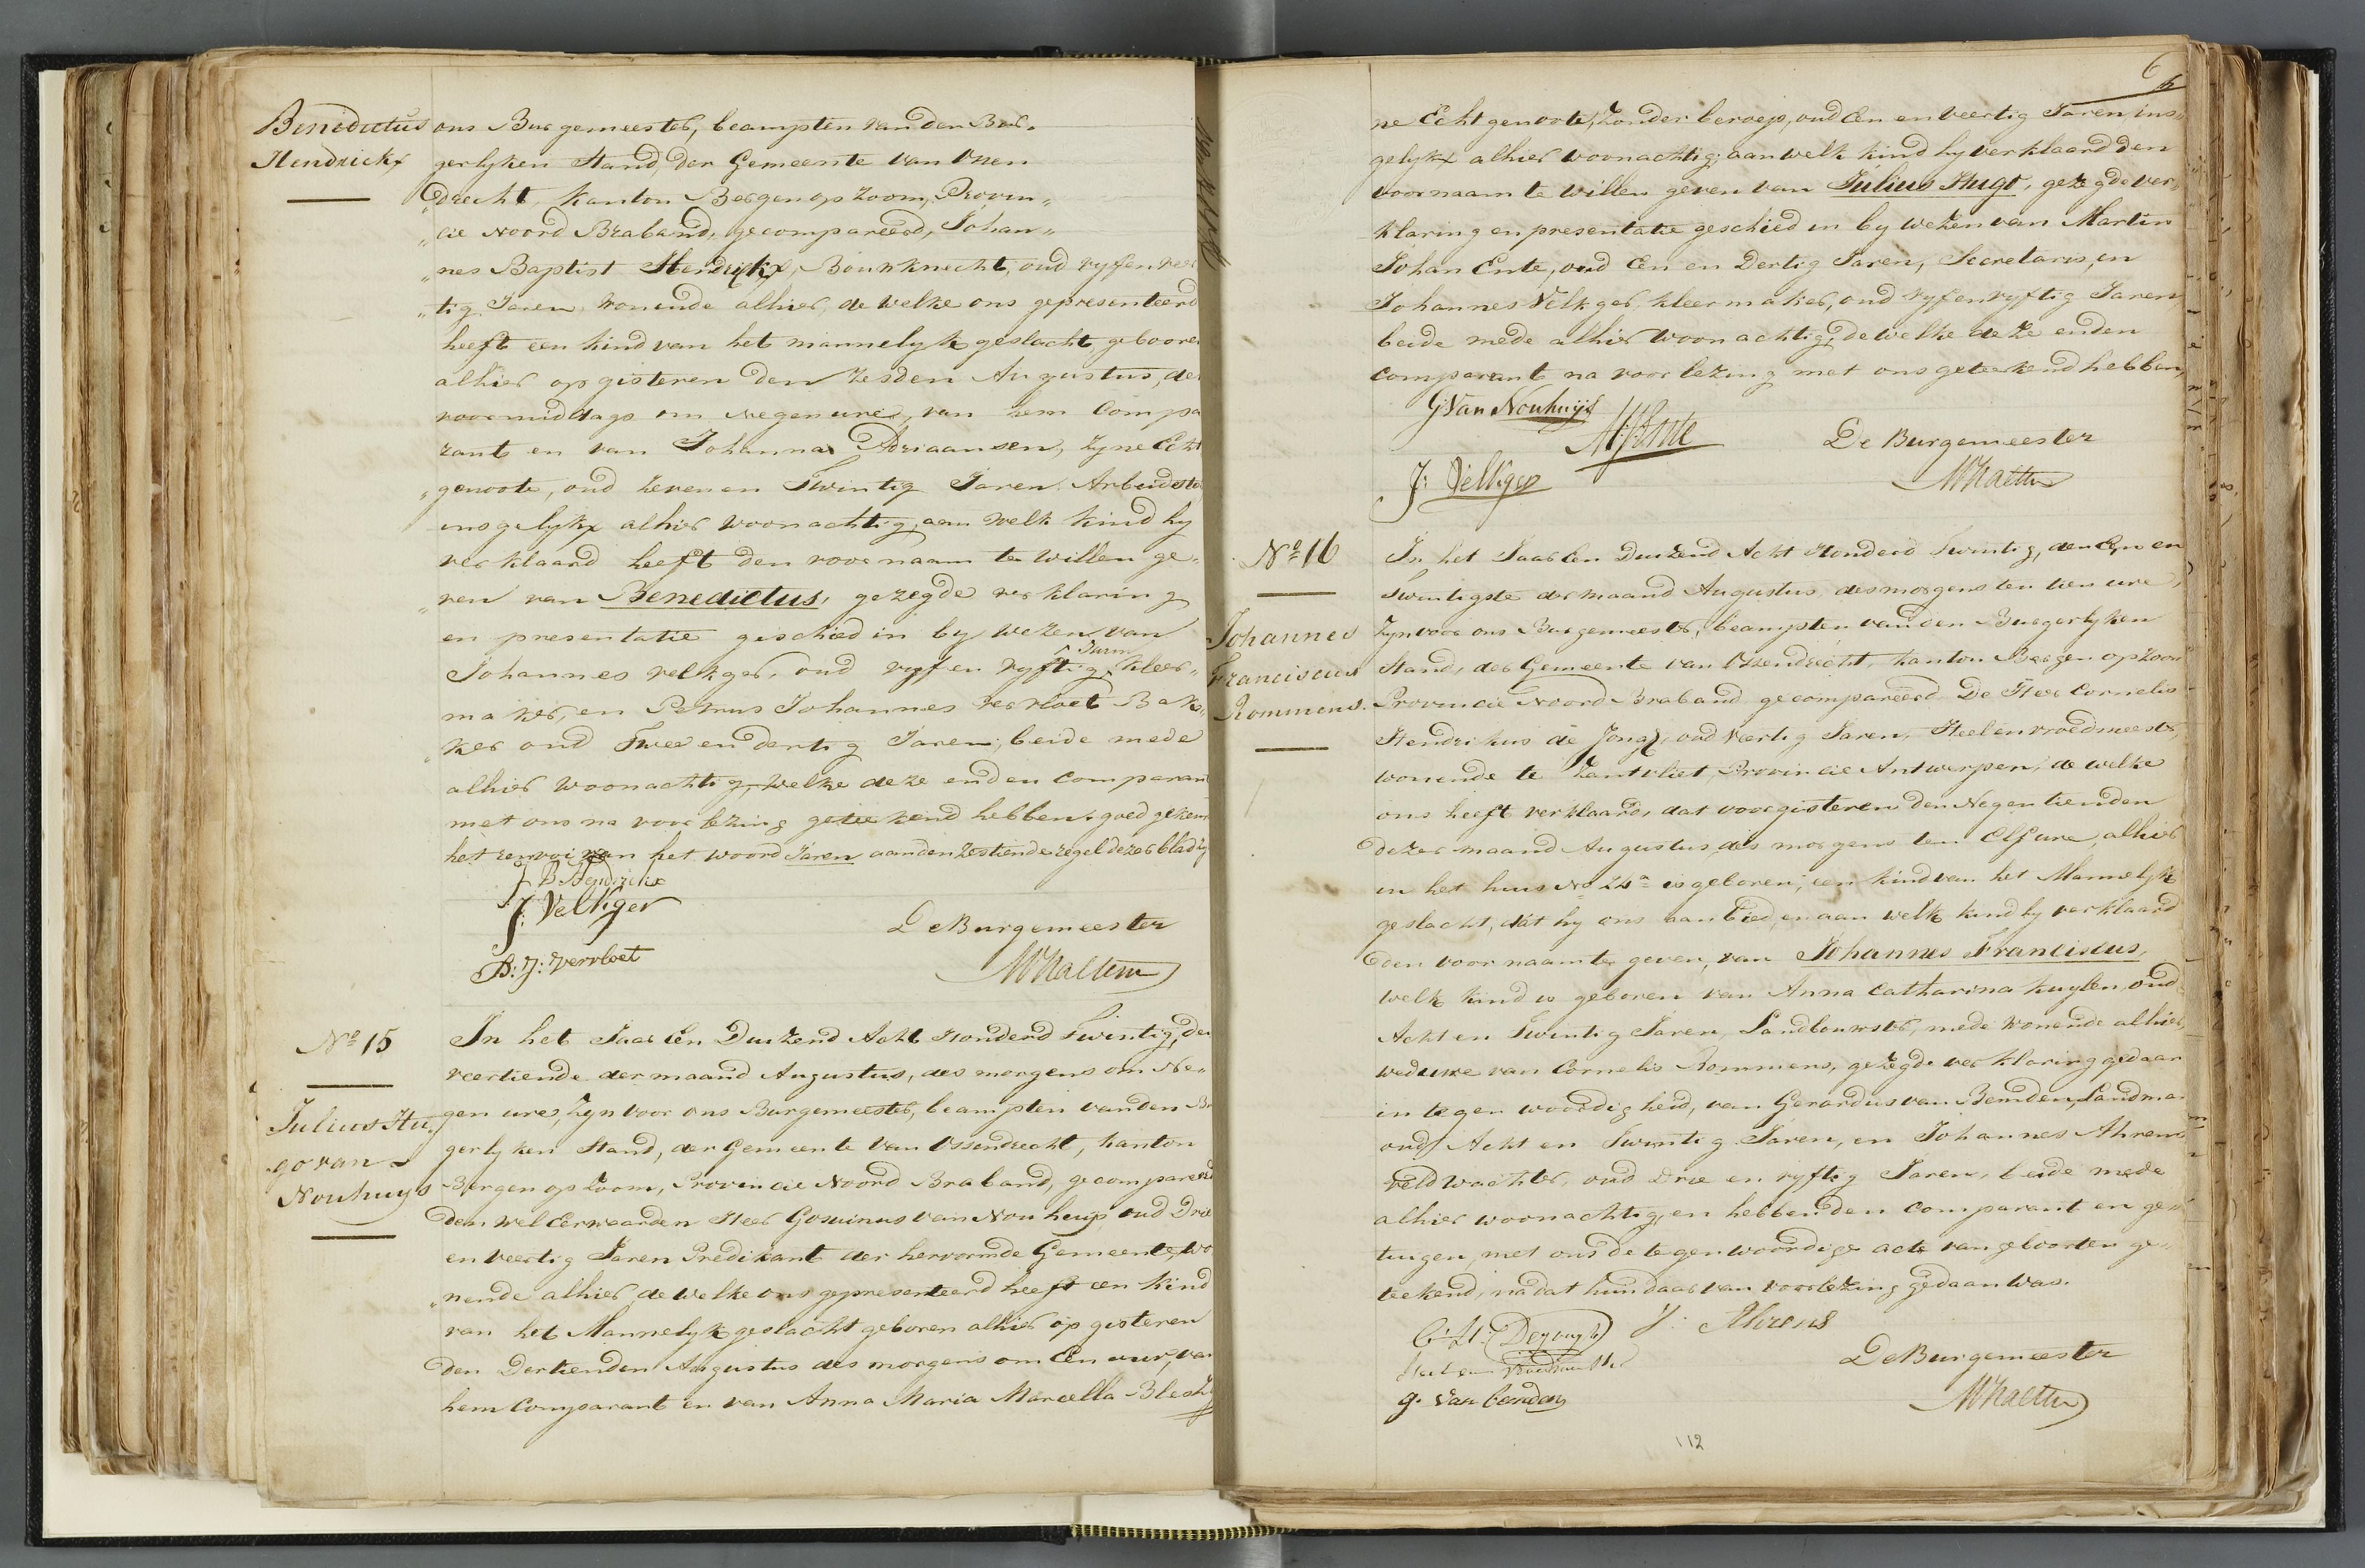 Benedictus
Hendrickx
ons Burgemeester, beampten van den Bur„
gerlyken Stand, der Gemeente van Ossen
„drecht, kanton Bergen op Zoom, Provin„
„cie Noord Braband, gecompareerd, Johan„
„nes Baptist Hendrickx, Bouwknecht, oud vyf en veer
„tig Jaren wonende alhier, de welke ons gepresenteerd
heeft een kind van het mannelyk geslacht, gebooren
alhier op gisteren den zesden Augustus, des
voormiddags om negen ure, van hem Compa
rant en van Johanna Adriaansen, zyne Echt
„genoote, oud zeven en Twintig Jaren Arbeidster
insgelykx alhier woonachtig, aan welk kind hy
verklaard heeft den voornaam te willen ge„
„ven van Benedictus, gezegde verklaring
en presentatie geschied in by wezen van
Johannes velkger, oud vyf en vyftig Jaren kleer„
maker, en Petrus Johannes vervloet Bak„
„ker oud Twee en dertig Jaren, beide mede
alhier woonachtig, welke deze en den Comparant
met ons na voorlezing geteekend hebben, goed gekeurd
het renvoi van het woord Jaren aan den zestiende regel dezer bladzy
J B Hendrickx
J: Velkger
P: J: Vervloet
De Burgemeester
No 15
Julius Hu„
go van
Nouhuys
In het Jaar Een Duizend Acht Honderd Twintig, den
veertiende der maand Augustus, des morgens om Ne„
gen ure, zyn voor ons Burgemeester, beampten van den Bu
gerlyken Stand, der Gemeente van Ossendrecht, kanton
Bergen op Zoom, Provincie Noord Braband, gecompareerd
den wel Eerwaarden Heer Gosuinus van Nouhuys oud Drie
en veertig Jaren Predikant der hervormde Gemeente, wo
„nende alhier, de welke ons gepresenteerd heeft een kind
van het Mannelyk geslacht geboren alhier op gisteren
den Dertienden Augustus des morgens om Een uur, van
hem Comparant en van Anna Maria Marcella
6
ne Echtgenoote, zonder beroep, oud Een en veertig Jaren ins„
gelykx alhier woonachtig; aan welk kind hy verklaard den
voornaam te willen geven van Julius Hugo, gezegde ver„
klaring en presentatie geschied in by wezen van Martin
Johan Ente, oud Een en Dertig Jaren, Secretaris, en
Johannes Velkger, kleermaker, oud vyf en vyftig Jaren,
beide mede alhier woonachtig, de welke deze en den
Comparant na voorlezing met ons geteekend hebben,
G: Van Nouhuijs
M: J: Ente
J: Velkger
De Burgemeester
No 16
Johannes
Franciscus
Rommens.
In het Jaar Een Duizend Acht Honderd Twintig, den Een en
Twintigste der maand Augustus, des morgens ten tien ure,
Zyn voor ons Burgemeester, beampten van den Burgerlyken
Stand, der Gemeente van Ossendrecht, kanton Bergen op Zoom
Provincie Noord Braband gecompareerd De Heer Cornelis
Hendrikus de Jong, oud veertig Jaren, Heel en vroedmeester,
wonende te Zantvliet, Provincie Antwerpen, de welke
ons heeft verklaard, dat voorgisteren den Negentienden
dezer maand Augustus, des morgens ten Elf ure, alhier
in het huis No 24a is geboren, een kind van het Mannelyk
geslacht, dat hy ons aanbied, en aan welk kind hy verklaard
den voornaam te geven, van Johannes Franciscus,
welk kind is geboren van Anna Catharina kuylen, oud
Acht en Twintig Jaren, Landbouwster, mede wonende alhier,
weduwe van Cornelis Rommens, gezegde verklaring gedaan
in tegenwoordigheid, van Gerardus van Bemden, Landman
oud Acht en Twintig Jaren, en Johannes Ahrens
veldwachter, oud Drie en vyftig Jaren, beide mede
alhier woonachtig, en hebben den Comparant en ge„
tuigen, met ons de tegenwoordige acte van geboorten ge„
teekend, na dat hun daar van voorlezing gedaan was.
J: Ahrens
g. van bemden
De Burgemeester
112